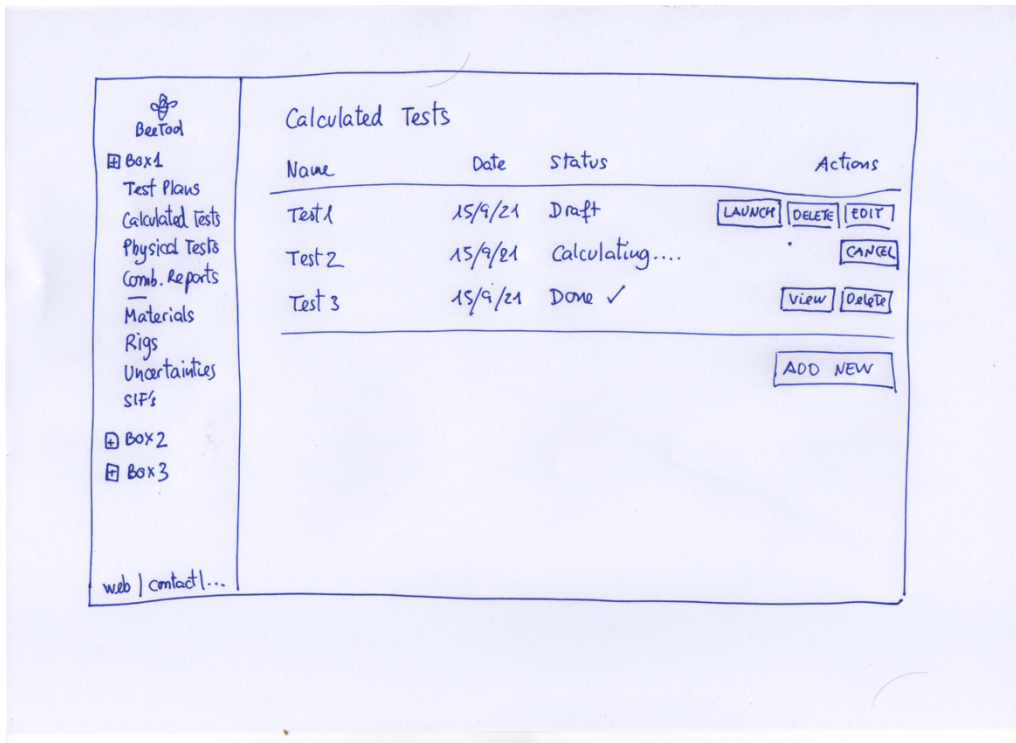 BeeTool
Box1
Test Plans
Calculated Tests
Physical Tests
Comb. Reports
Materials
Rigs
Uncertainties
SIF's
Box2
Box3
web | contact | ...
Calculated Tests
Name Date Status Actions
Test1 15/9/21 Draft LAUNCH DELETE EDIT
Test2 15/9/21 Calculating.... CANCEL
Test3 15/9/21 Done ✓ View Delete
ADD NEW